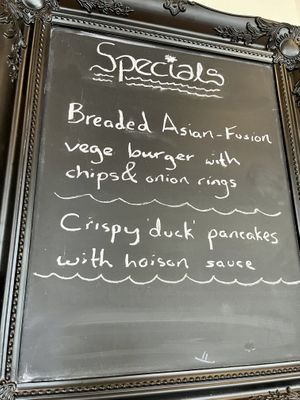 Specials
Breaded Asian-Fusion
vege burger with
chips & onion rings
Crispy 'duck' pancakes
with hoison sauce